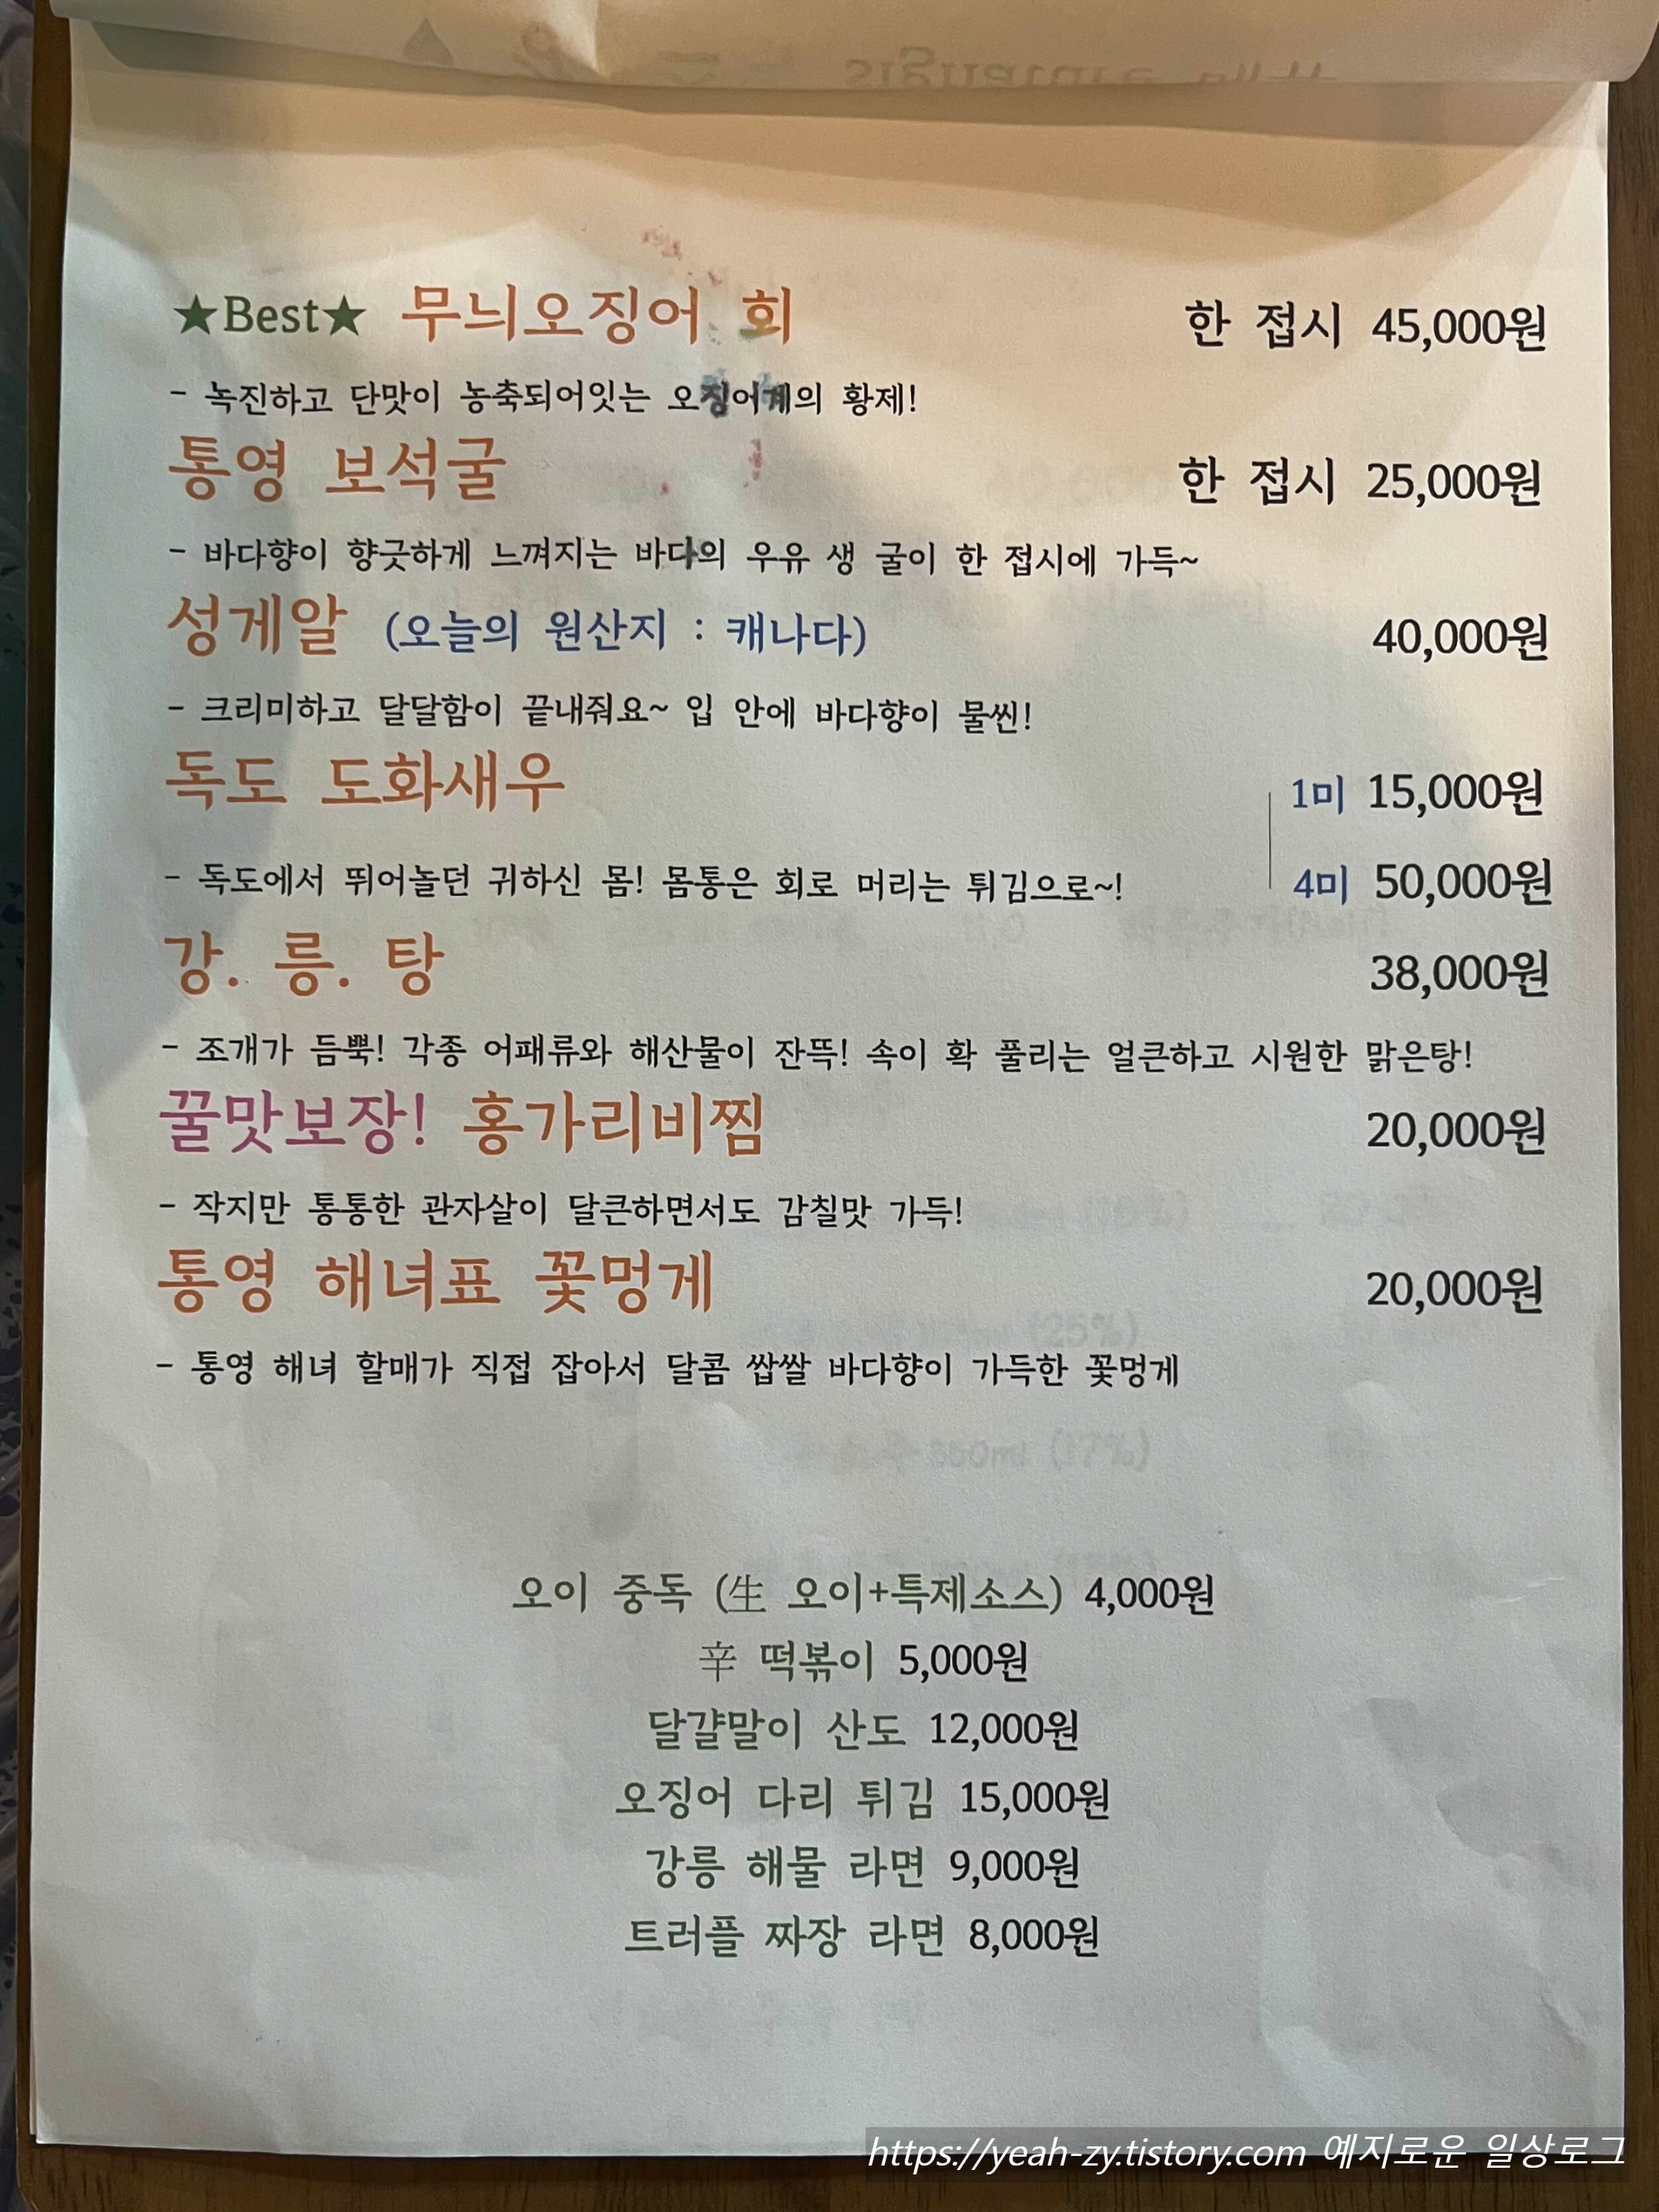 ★Best★ 무늬오징어 회 한 접시 45,000원
- 녹진하고 단맛이 농축되어잇는 오징어계의 황제!
통영 보석굴 한 접시 25,000원
- 바다향이 향긋하게 느껴지는 바다의 우유 생 굴이 한 접시에 가득~
성게알 (오늘의 원산지 : 캐나다) 40,000원
- 크리미하고 달달함이 끝내줘요~ 입 안에 바다향이 물씬!
독도 도화새우 1미 15,000원
- 독도에서 뛰어놀던 귀하신 몸! 몸통은 회로 머리는 튀김으로~! 4미 50,000원
강. 릉. 탕 38,000원
- 조개가 듬뿍! 각종 어패류와 해산물이 잔뜩! 속이 확 풀리는 얼큰하고 시원한 맑은탕!
꿀맛보장! 홍가리비찜 20,000원
- 작지만 통통한 관자살이 달큰하면서도 감칠맛 가득!
통영 해녀표 꽃멍게 20,000원
- 통영 해녀 할매가 직접 잡아서 달콤 쌉쌀 바다향이 가득한 꽃멍게
오이 중독 (生 오이+특제소스) 4,000원
辛 떡볶이 5,000원
달걀말이 산도 12,000원
오징어 다리 튀김 15,000원
강릉 해물 라면 9,000원
트러플 짜장 라면 8,000원
https://yeah-zy.tistory.com 예지로운 일상로그